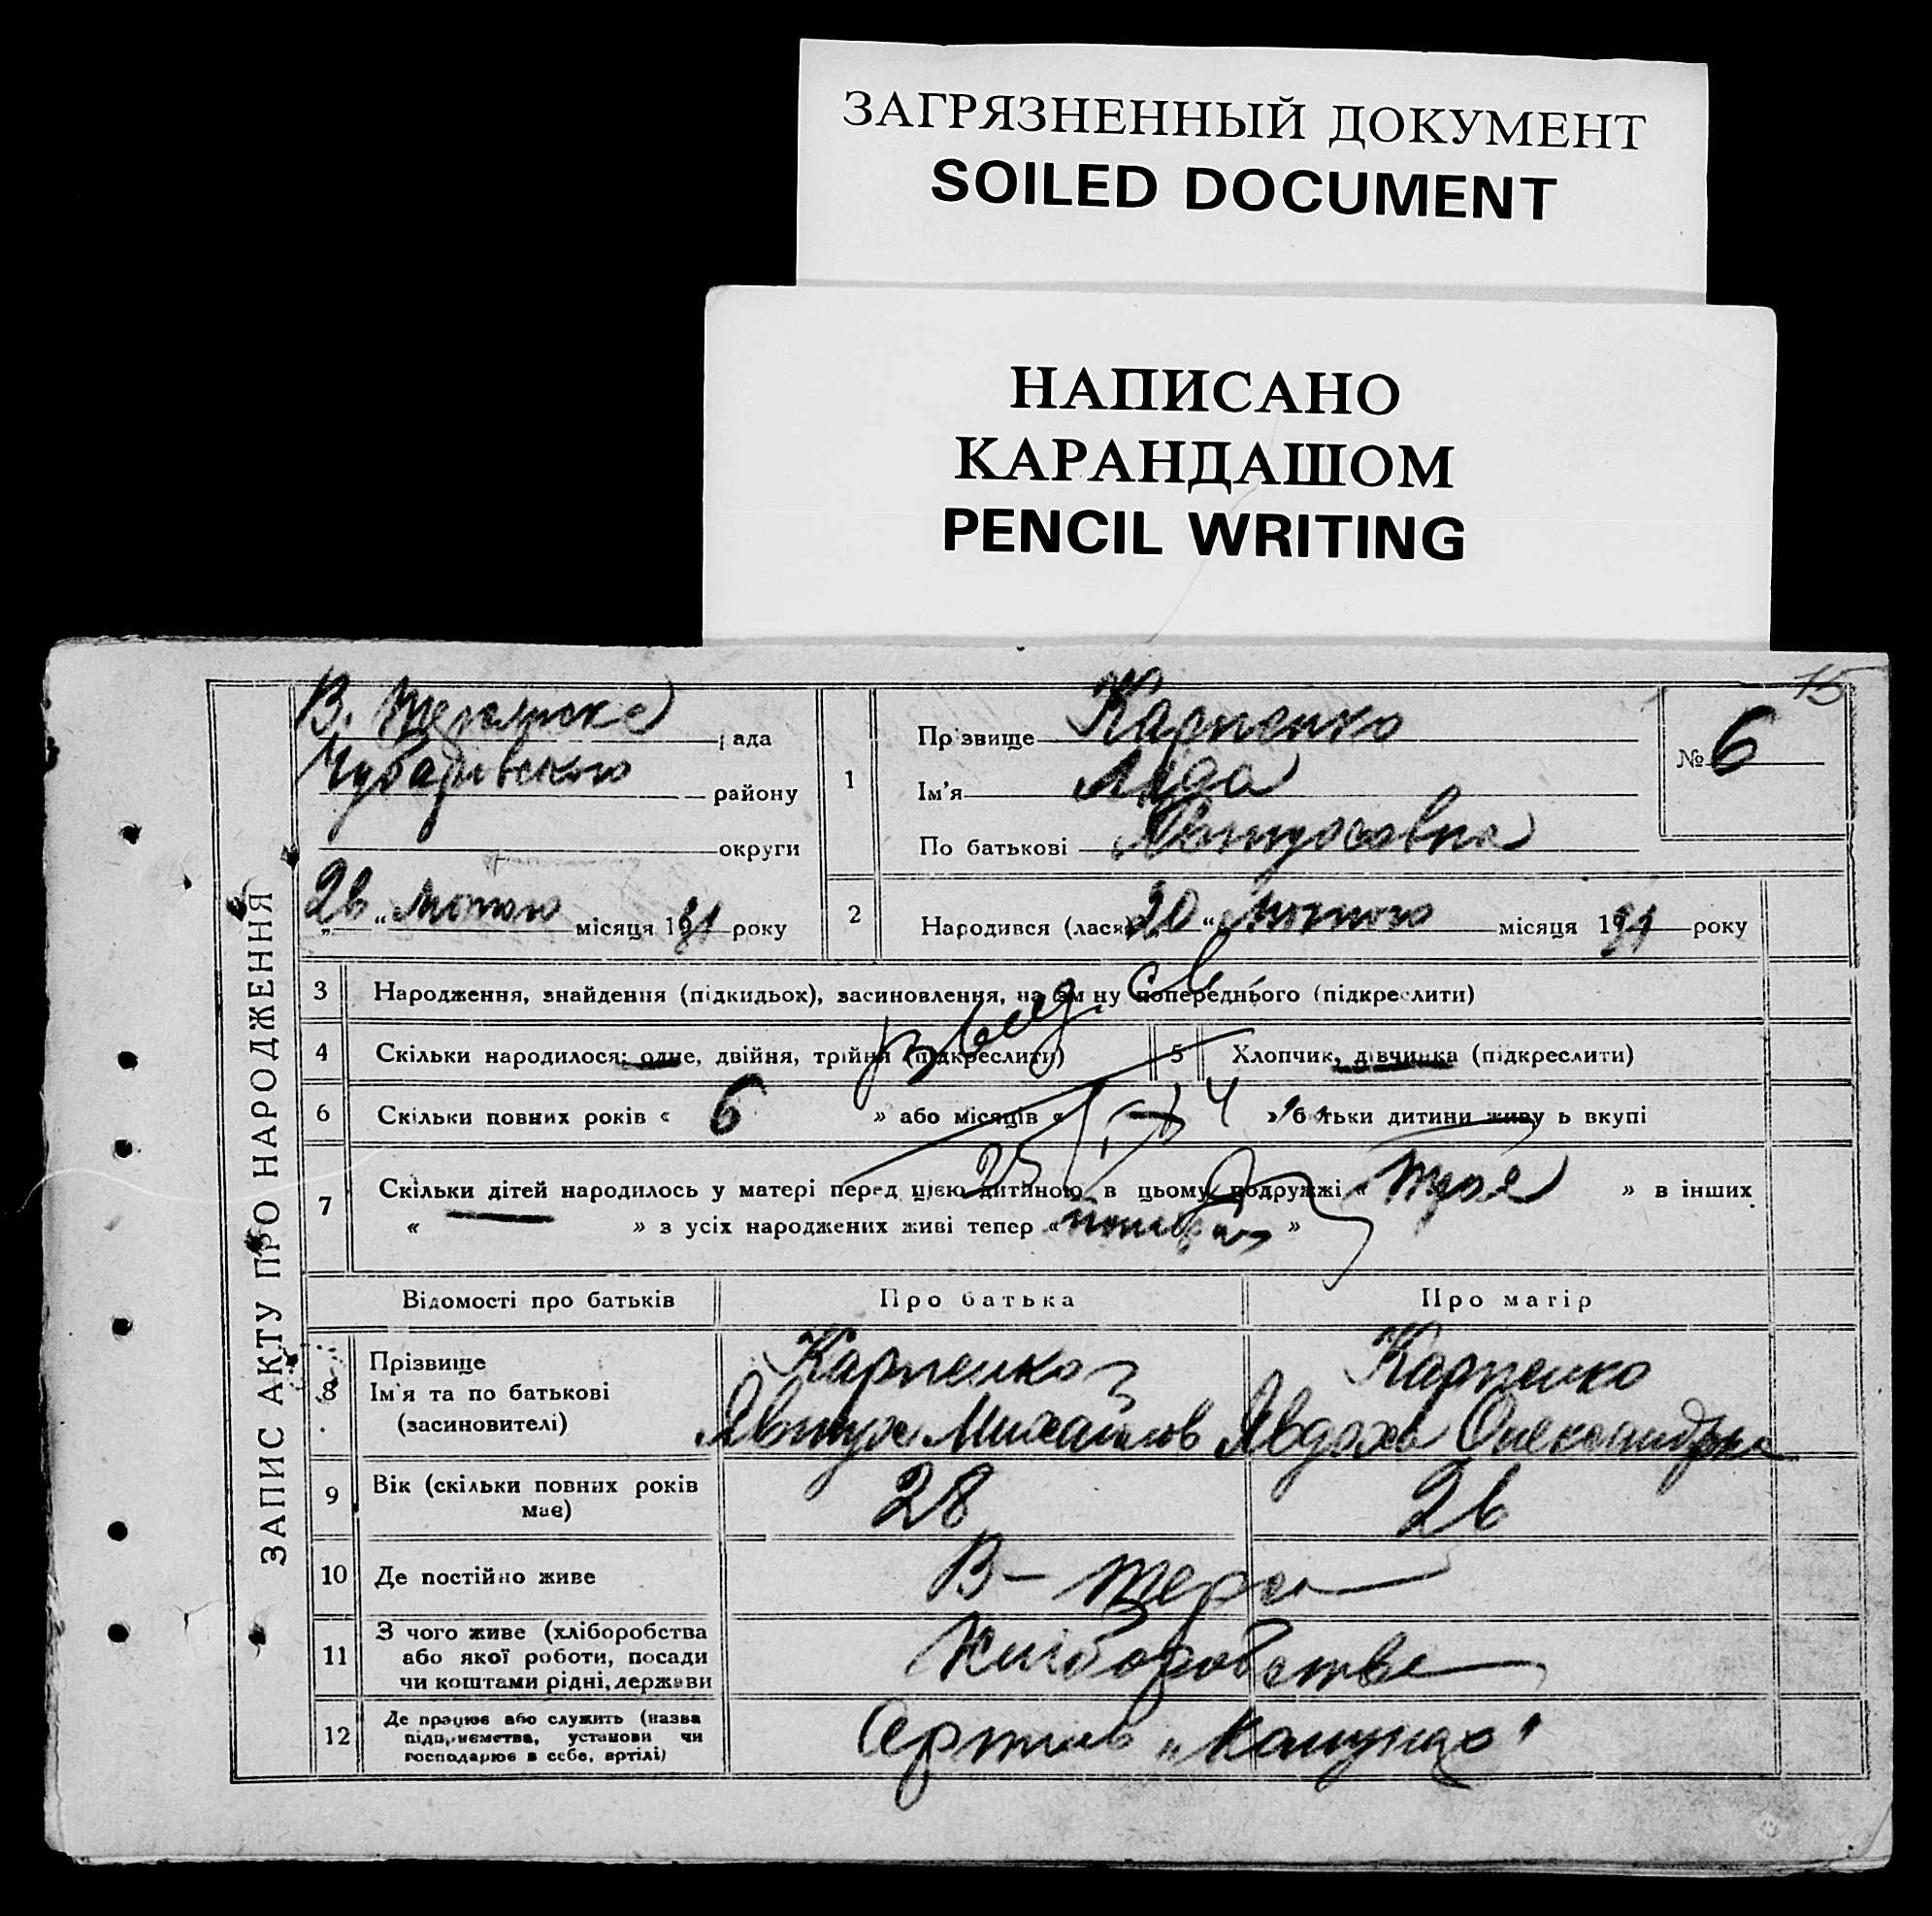 ЗАГРЯЗНЕННЫЙ ДОКУМЕНТ
SOILED DOCUMENT
НАПИСАНО
КАРАНДАШОМ
PENCIL WRITING
15
ЗАПИС АКТУ ПРО НАРОДЖЕННЯ
рада
Чубарівського району
округи
26 Лютого місяця 1931 року
1
Прізвище Карпенко
Ім'я Ліда
По батькові
№ 6
2 Народився (лася) 20 Лютого місяця 1931 року
3 Народження, знайдення (підкидьох), засиновлення, на зміну попереднього (підкреслити)
4 Скільки народилося: одне, двійня, трійня (підкреслити) 5 Хлопчик, дівчинка (підкреслити)
6 Скільки повних років « 6 » або місяців « » батьки дитини живуть вкупі
7 Скільки дітей народилось у матері перед цією дитиною в цьому подружжі « троє » в інших
« — » з усіх народжених живі тепер « »
Відомості про батьків Про батька Про матір
8 Прізвище Карпенко Карпенко
Ім'я та по батькові Явтух Михайлов Явдоха Олександр
(засиновителі)
9 Вік (скільки повних років має) 28 26
10 Де постійно живе В-Терса
11 З чого живе (хліборобства або якої роботи, посади чи коштами рідні, держави Хліборобства
12 Де працює або служить (назва підприємства, установи чи господарює в себе, артілі) Артиль